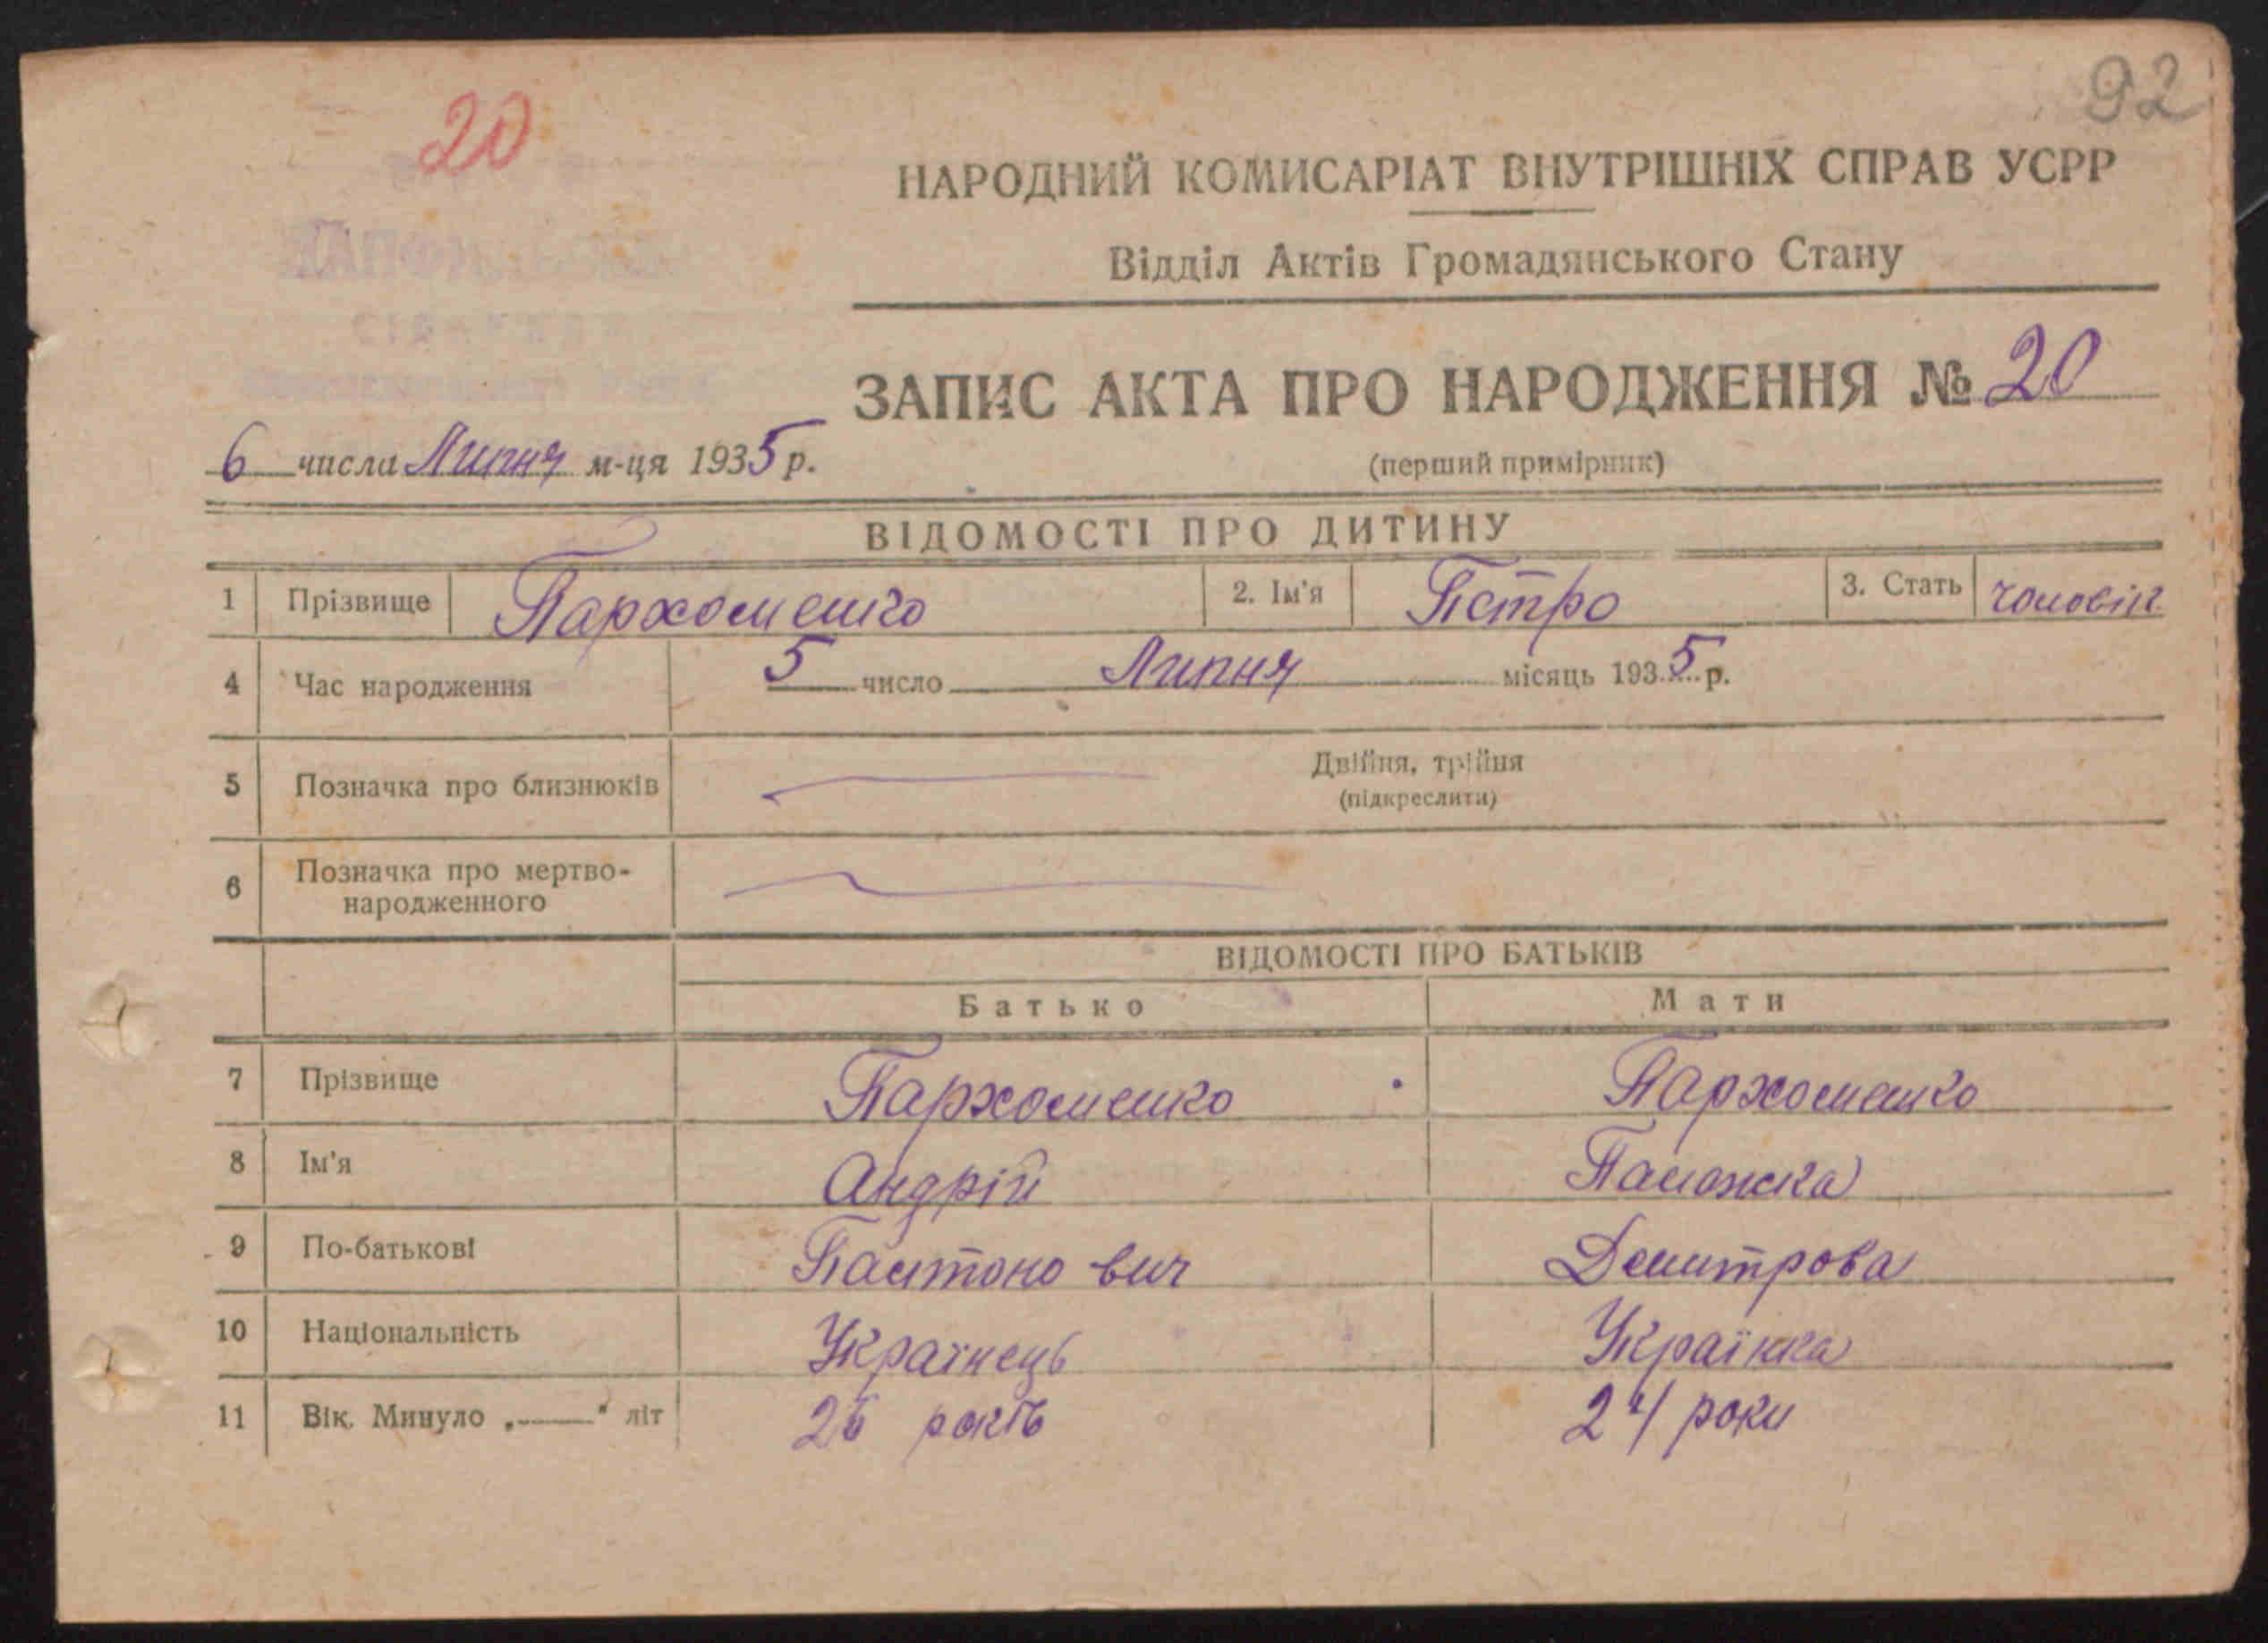 92
20
НАРОДНИЙ КОМИСАРІАТ ВНУТРІШНІХ СПРАВ УСРР
Відділ Актів Громадянського Стану
ЗАПИС АКТА ПРО НАРОДЖЕННЯ № 20
6 числа Липня м-ця 1935 р.
(перший примірник)
ВІДОМОСТІ ПРО ДИТИНУ
1 Прізвище Пархоменко 2. Ім'я Петро 3. Стать чоловік
4 Час народження 5 число Липня місяць 1935 р.
5 Позначка про близнюків Двійня, трійня
(підкреслити)
6 Позначка про мертво-
народженного
ВІДОМОСТІ ПРО БАТЬКІВ
Батько Мати
7 Прізвище Пархоменко Пархоменко
8 Ім'я Андрій
9 По-батькові Дмитрова
10 Національність Українець Українка
11 Вік. Минуло „——" літ 26 років 24 роки